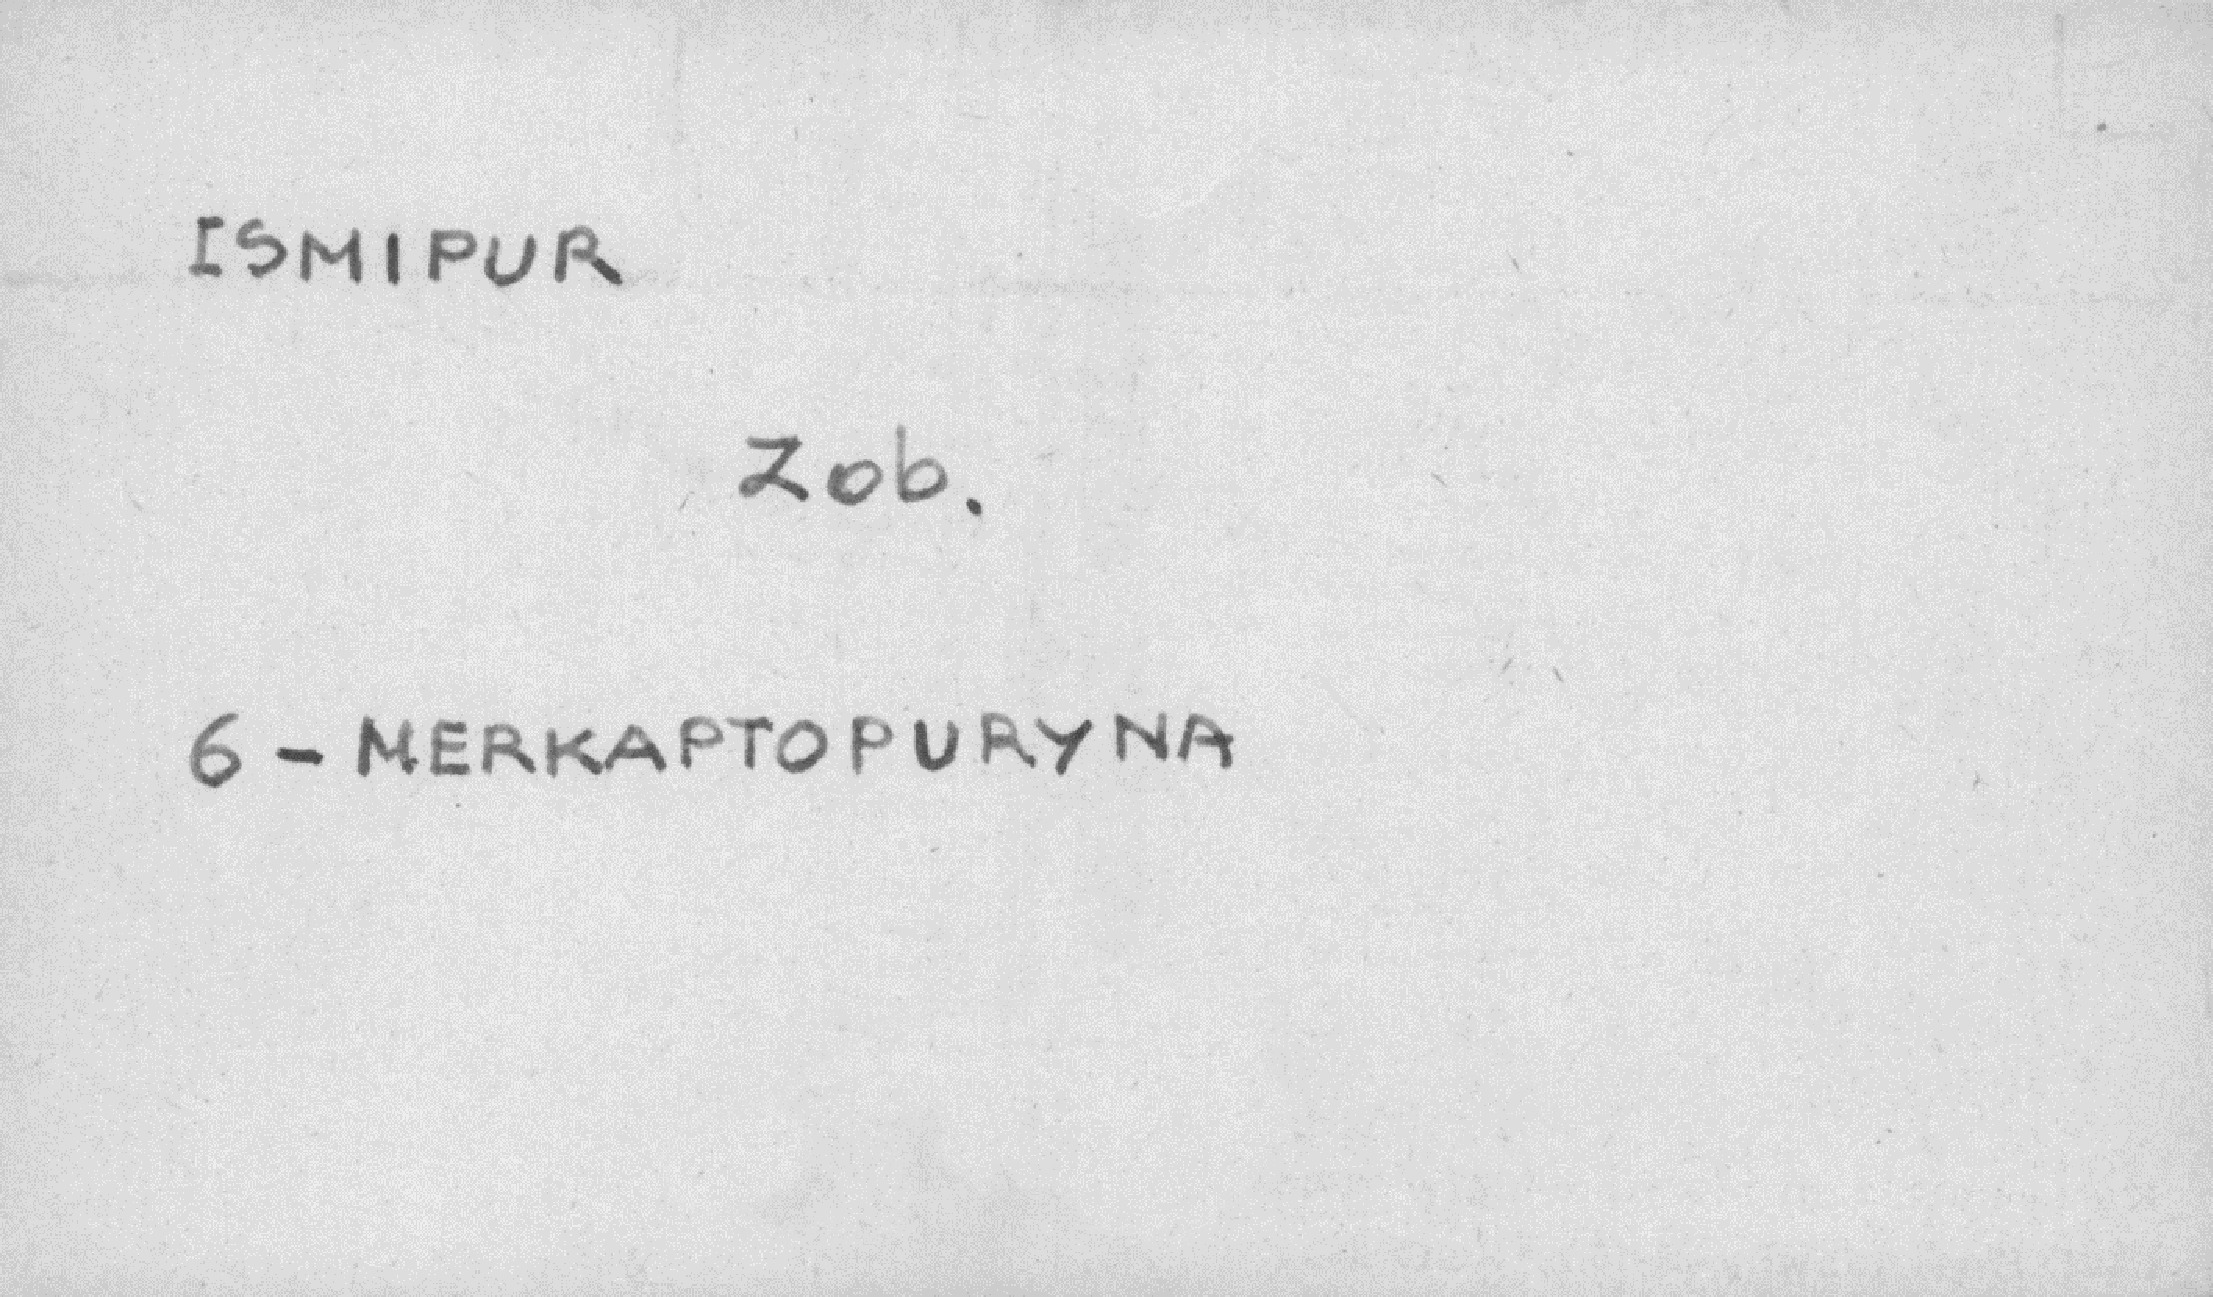 ISMIPUR
Zob.
6 - MERKAPTOPURYNA